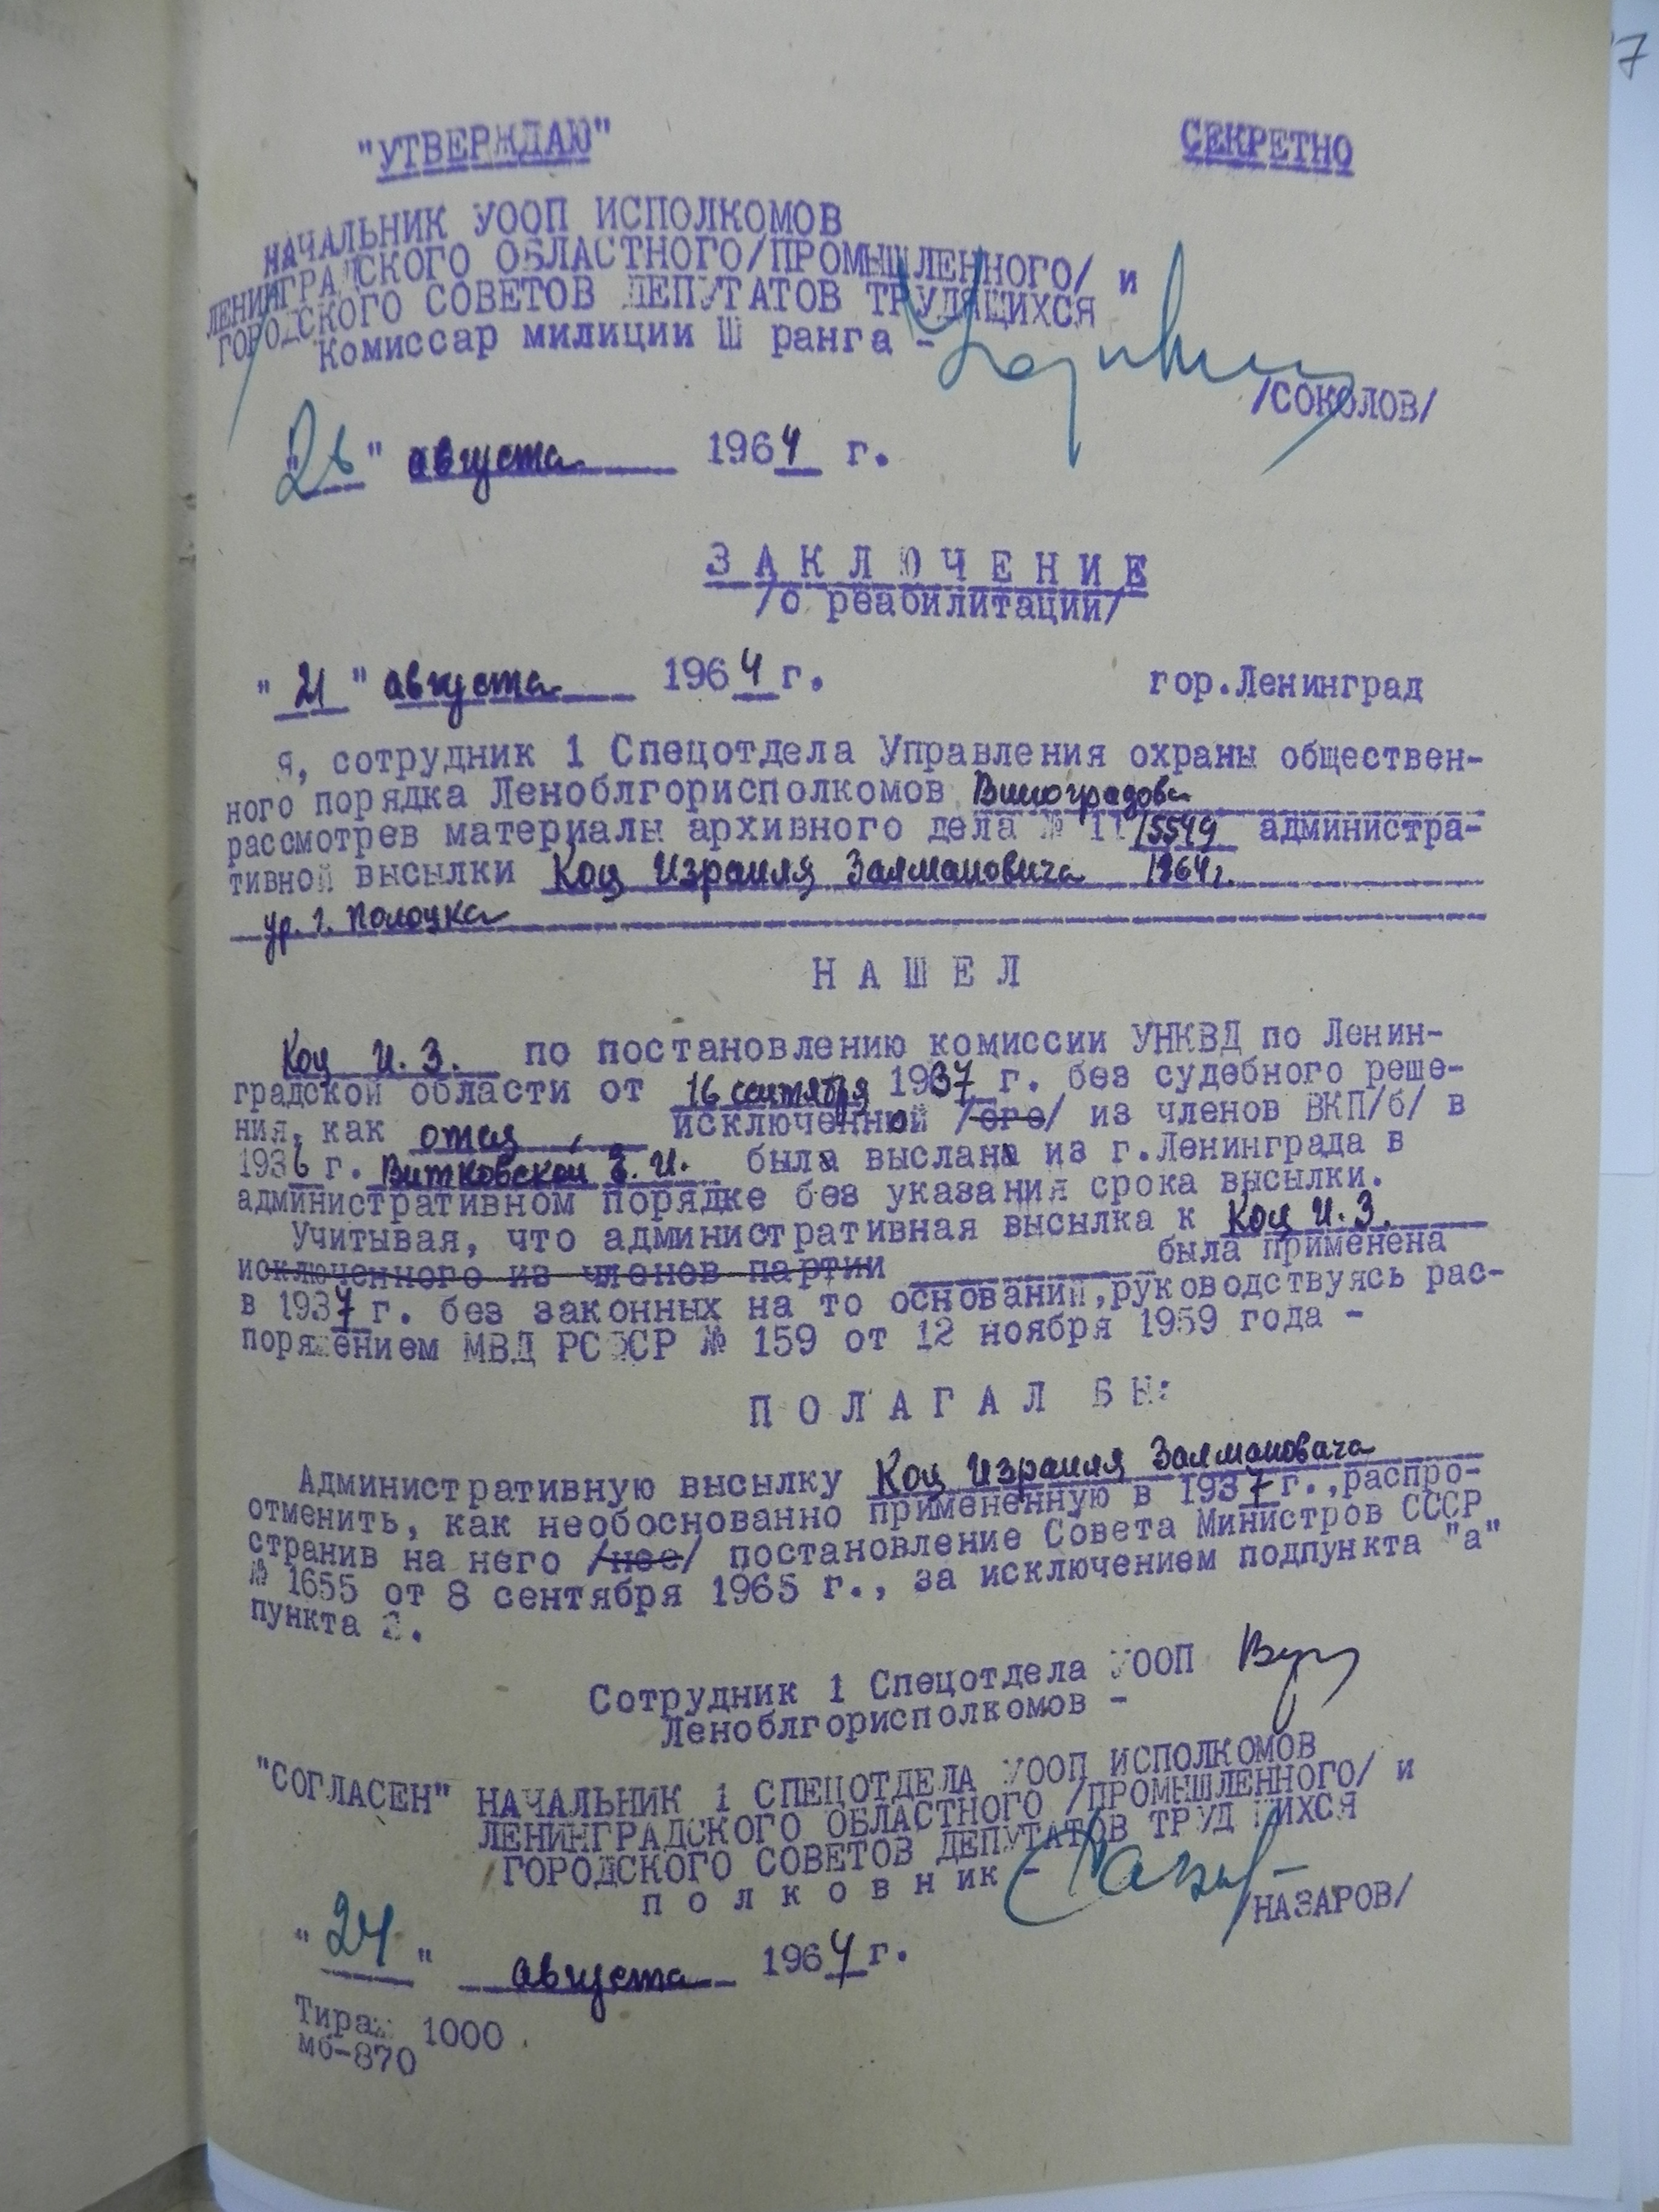 7
"УТВЕРЖДАЮ" СЕКРЕТНО
НАЧАЛЬНИК УООП ИСПОЛКОМОВ
ЛЕНИНГРАДСКОГО ОБЛАСТНОГО/ПРОМЫШЛЕННОГО/ и
ГОРОДСКОГО СОВЕТОВ ДЕПУТАТОВ ТРУДЯЩИХСЯ
Комиссар милиции Ш ранга -
/СОКОЛОВ/
"26" августа 1964 г.
ЗАКЛЮЧЕНИЕ
/о реабилитации/
"21" августа 1964 г. гор.Ленинград
я, сотрудник 1 Спецотдела Управления охраны обществен-
ного порядка Леноблгорисполкомов Виноградова
рассмотрев материалы архивного дела № 11/5549 администра-
тивной высылки Коц Израиля Залмановича 1864г.
ур. г. Полоцка
НАШЕЛ
Коц И. З. по постановлению комиссии УНКВД по Ленин-
градской области от 16 сентября 1937 г. без судебного реше-
ния, как отец исключенной /его/ из членов ВКП/б/ в
1936 г. Витковской Е. И. был выслан из г.Ленинграда в
административном порядке без указания срока высылки.
Учитывая, что административная высылка к Коц И. З.
исключенного из членов партии была применена
в 1937 г. без законных на то оснований,руководствуясь рас-
поряжением МВД РСФСР № 159 от 12 ноября 1959 года -
ПОЛАГАЛ БЫ:
Административную высылку Коц Израиля Залмановича
отменить, как необоснованно примененную в 1937 г.,распро-
странив на него /нее/ постановление Совета Министров СССР
№ 1655 от 8 сентября 1965 г., за исключением подпункта "а"
пункта 2.
Сотрудник 1 Спецотдела УООП
Леноблгорисполкомов -
"СОГЛАСЕН" НАЧАЛЬНИК 1 СПЕЦОТДЕЛА УООП ИСПОЛКОМОВ
ЛЕНИНГРАДСКОГО ОБЛАСТНОГО /ПРОМЫШЛЕННОГО/ и
ГОРОДСКОГО СОВЕТОВ ДЕПУТАТОВ ТРУДЯЩИХСЯ
полковник -
/НАЗАРОВ/
"24" августа 1964 г.
Тираж 1000
мб-870